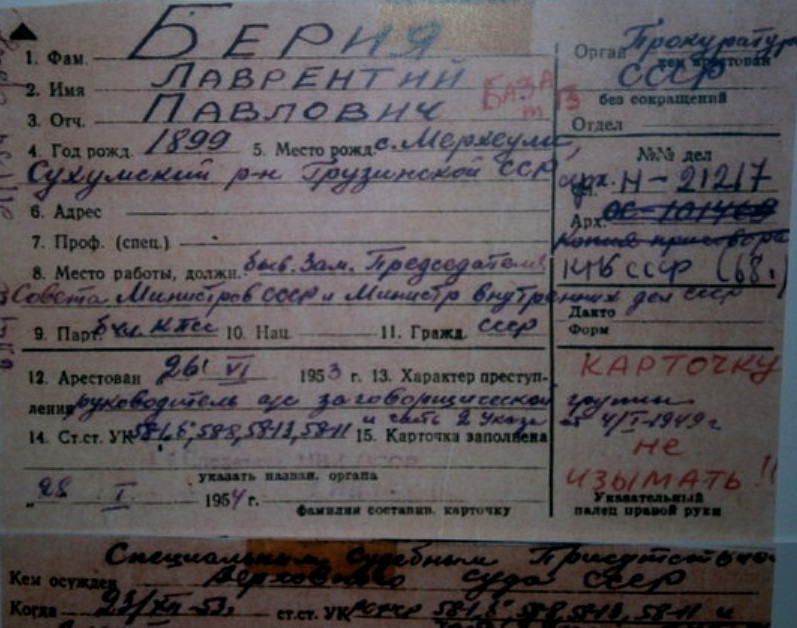 1. Фам. БЕРИЯ
2. Имя ЛАВРЕНТИЙ
3. Отч. ПАВЛОВИЧ
БАЗА
4. Год рожд. 1899 5. Место рожд. с. Мерхеули,
Сухумский р-н Грузинской ССР
6. Адрес
7. Проф. (спец.)
8. Место работы, должн. быв. Зам. Председателя
Совета Министров СССР и Министр внутренних дел СССР
9. Парт. б чл. КПСС 10. Нац. 11. Гражд. СССР
12. Арестован 26 VI 1953 г. 13. Характер преступ-
ления руководитель а/с заговорщической группы
и часть 2 Указа от 4/I-1949 г
14. Ст.ст. УК 58-8, 58-13, 58-11 15. Карточка заполнена
указать назван. органа
„28 I 1954 г.
фамилия составив. карточку
Орган Прокуратура
кем арестован
СССР
без сокращений
Отдел
№№ дел
арх. Н-21217
Арх.
копия приговора
КГБ СССР (68.)
Дакто
Форм
КАРТОЧКУ
не
ИЗЫМАТЬ!!
Указательный
палец правой руки
Специальным Судебным Присутствием
Кем осужден Верховного суда СССР
Когда 23/XII-53. ст.ст. УК 58-8, 58-13, 58-11 и